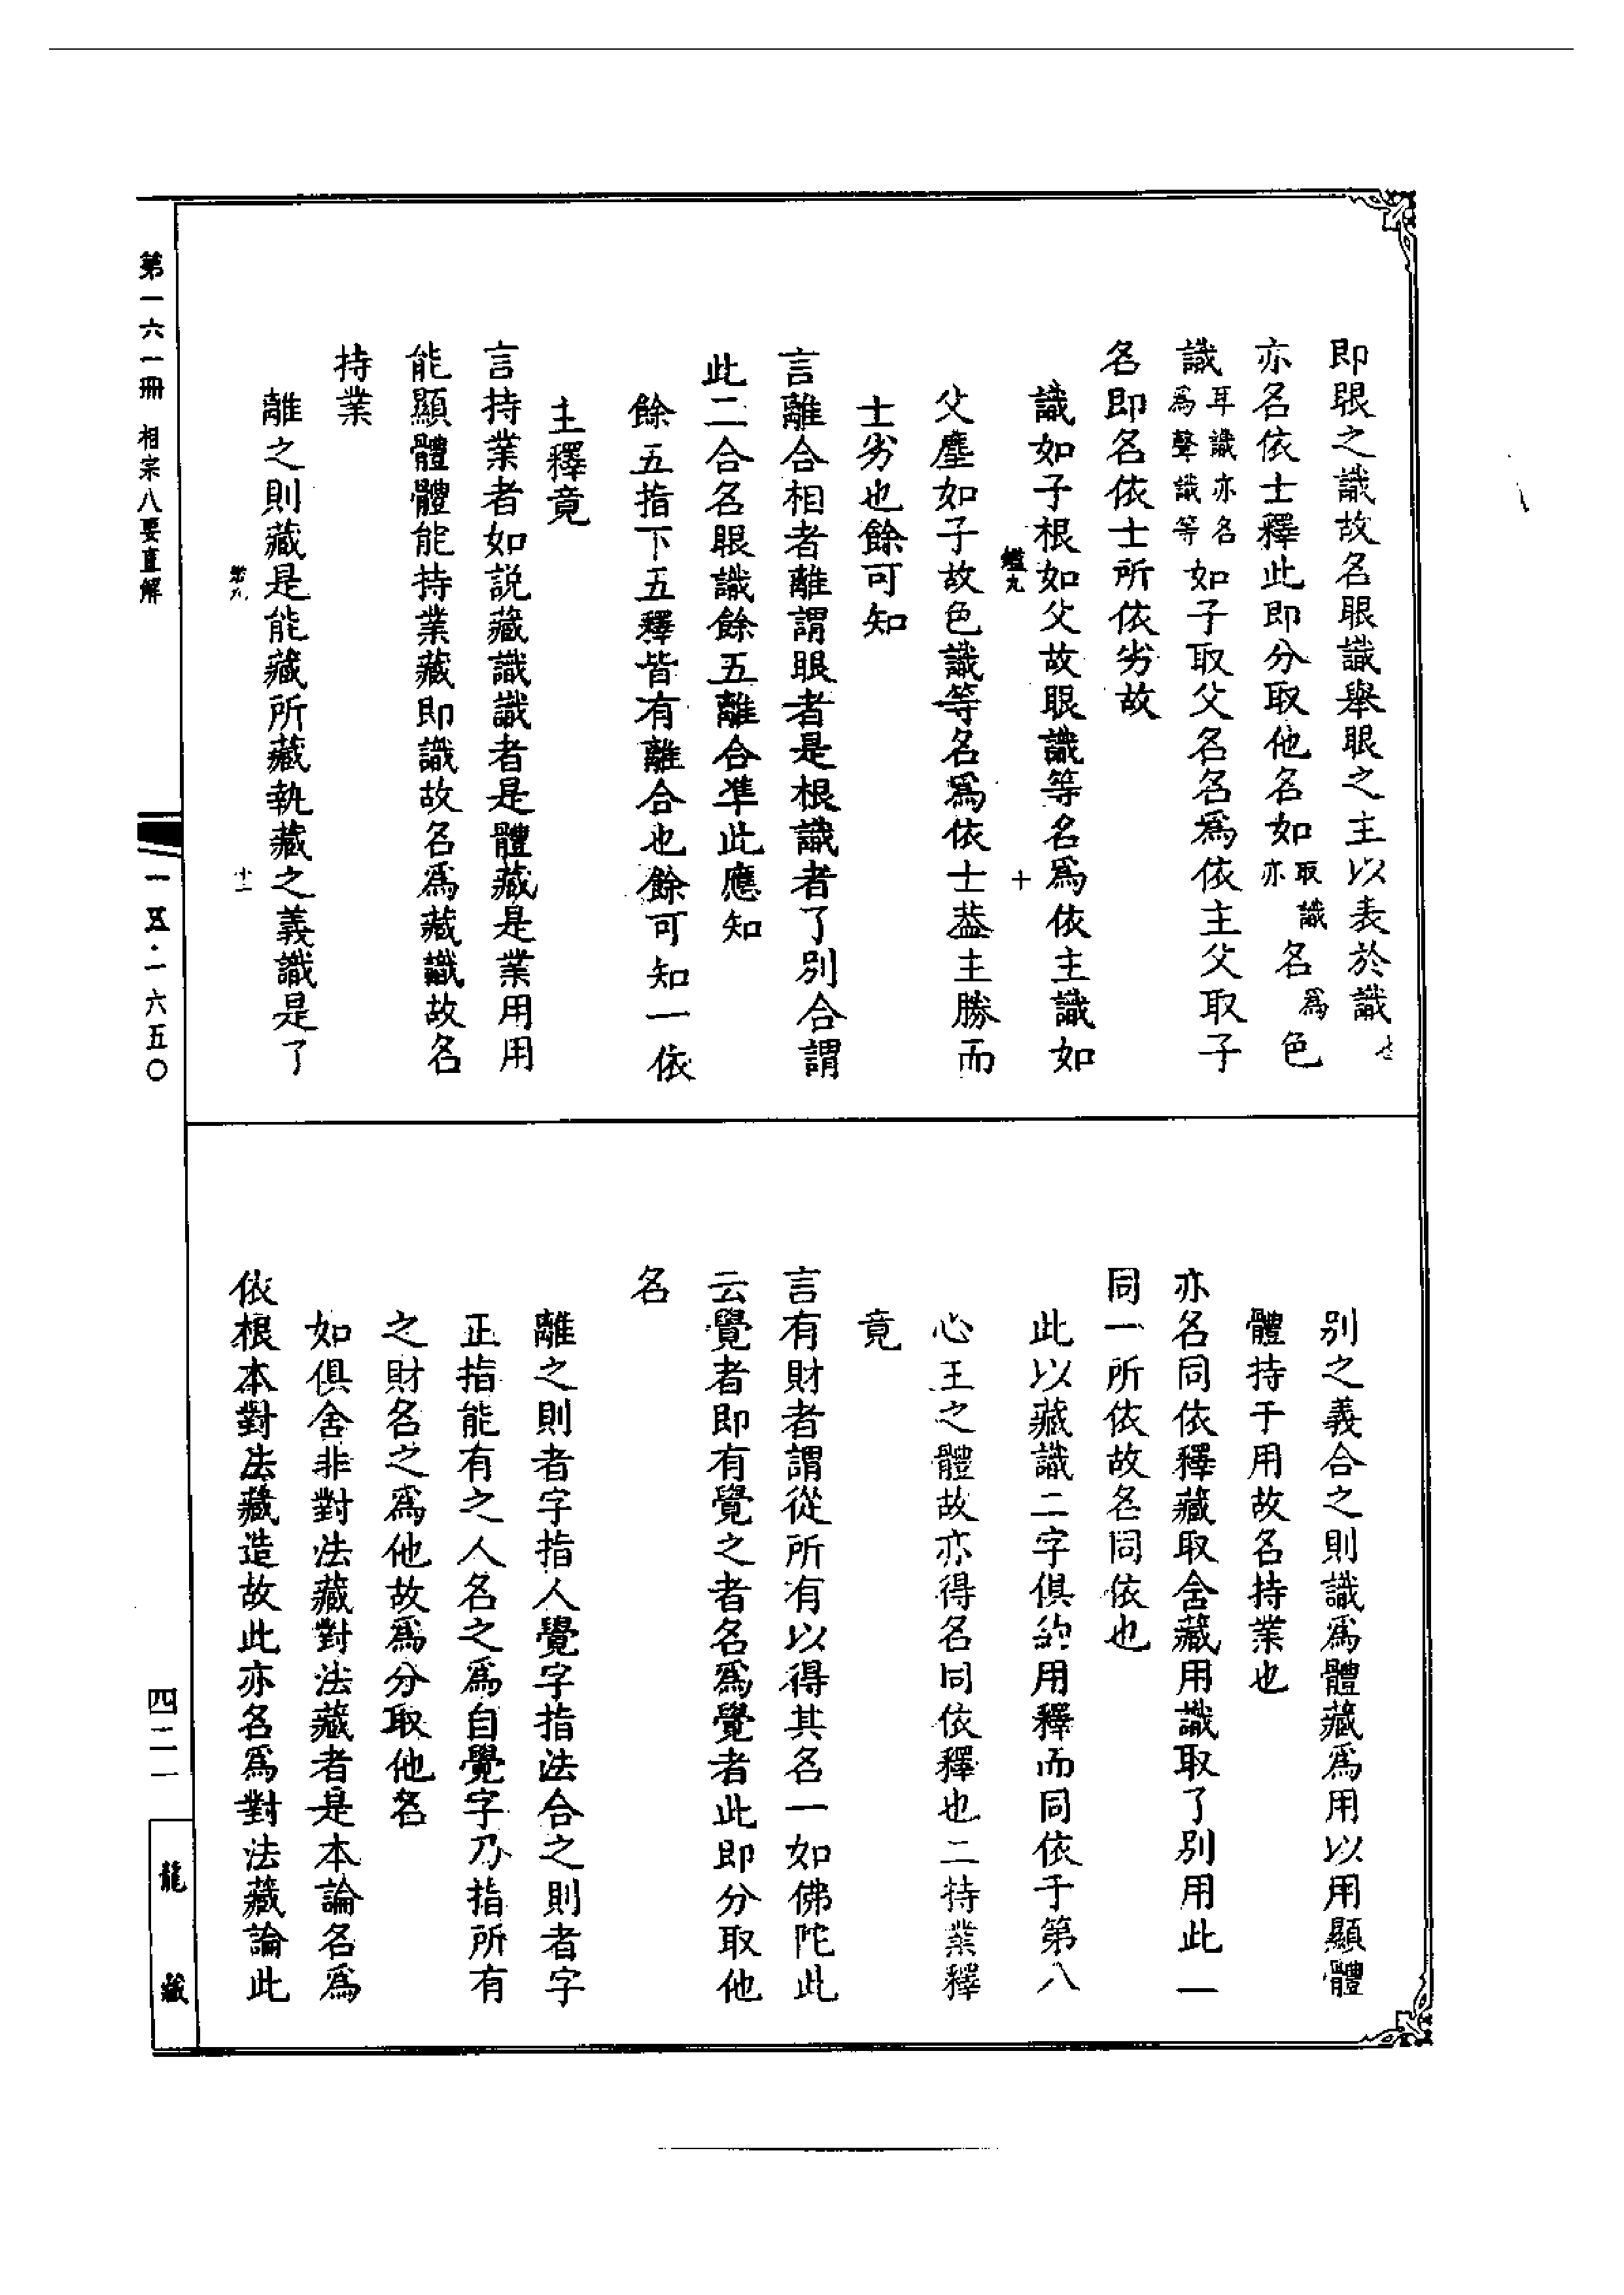 即眼之識故名眼識舉眼之主以表於識也
亦名依士釋此即分取他名如取識名為色亦
識耳識亦名為聲識等如子取父名名為依主父取子
名即名依士所依劣故
識如子根如父故眼識等名為依主識如
父塵如子故色識等名為依士葢主勝而
士劣也餘可知
言離合相者離謂眼者是根識者了別合謂
此二合名眼識餘五離合準此應知
餘五指下五釋皆有離合也餘可知一依
主釋竟
言持業者如說藏識識者是體藏是業用用
能顯體體能持業藏即識故名為藏識故名
持業
離之則藏是能藏所藏執藏之義識是了
十
十一
別之義合之則識為體藏為用以用顯體
體持于用故名持業也
亦名同依釋藏取含藏用識取了別用此二
同一所依故名同依也
此以藏識二字俱約用釋而同依于第八
心王之體故亦得名同依釋也二持業釋
竟
言有財者謂從所有以得其名一如佛陀此
云覺者即有覺之者名為覺者此即分取他
名
離之則者字指人覺字指法合之則者字
正指能有之人名之為自覺字乃指所有
之財名之為他故為分取他名
如俱舍非對法藏對法藏者是本論名為
依根本對法藏造故此亦名為對法藏論此
第一六一冊 相宗八要直解
一五·一六五〇
四二一
龍藏